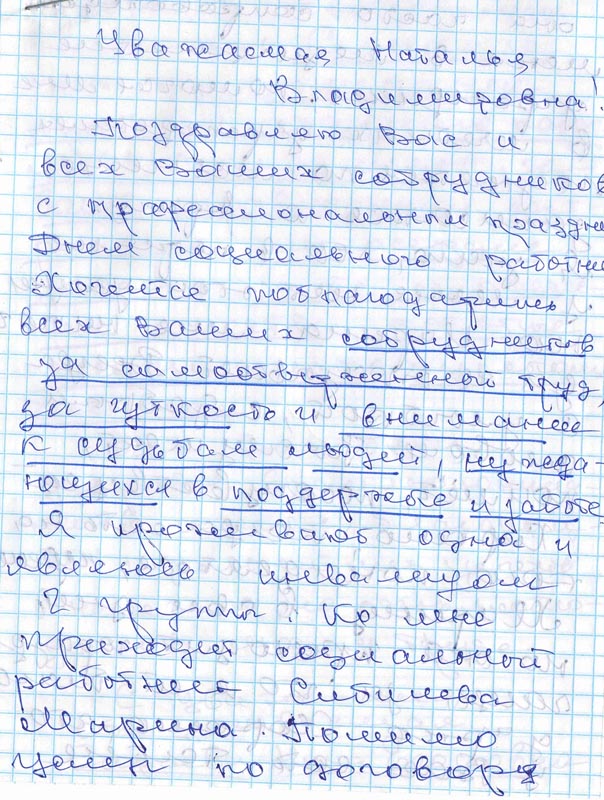 Уважаемая Наталья
Владимировна!
Поздравляю Вас и
всех Ваших сотрудников
с профессиональным праздни
Днем социального работни
Хочется поблагодарить
всех Ваших сотрудников
за самоотверженный труд,
за чуткость и внимание
к судьбам людей, нужда-
ющихся в поддержке и заботе
Я проживаю одна и
являюсь инвалидом
2 группы. Ко мне
приходит социальный
работник Сибилева
Марина. Помимо
услуг по договору